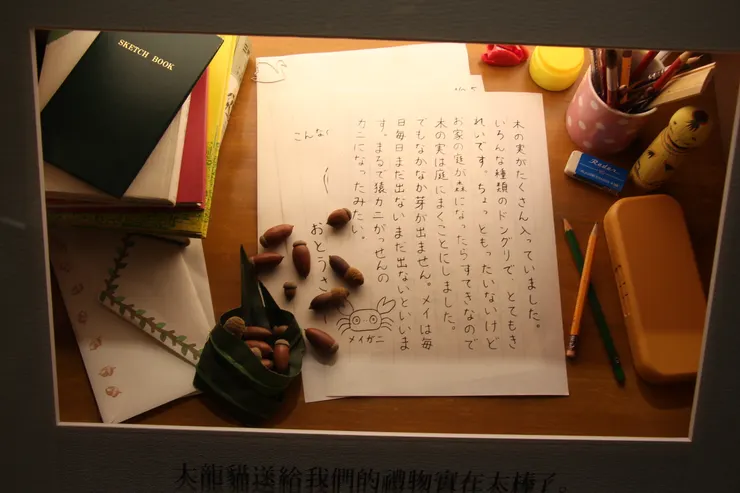 SKETCH BOOK
木の実がたくさん入っていました。
いろんな種類のドングリで、とてもき
れいです。ちょっともったいないけど
お家の庭が森になったらすてきなので
木の実は庭にまくことにしました。
でもなかなか芽が出ません。メイは毎
日毎日まだ出ないまだ出ないといいま
す。まるで猿カニがっせんの
カニになったみたい。
メイガニ
おとうさ
こんな
Radar
大龍貓送給我們的禮物實在太棒了。